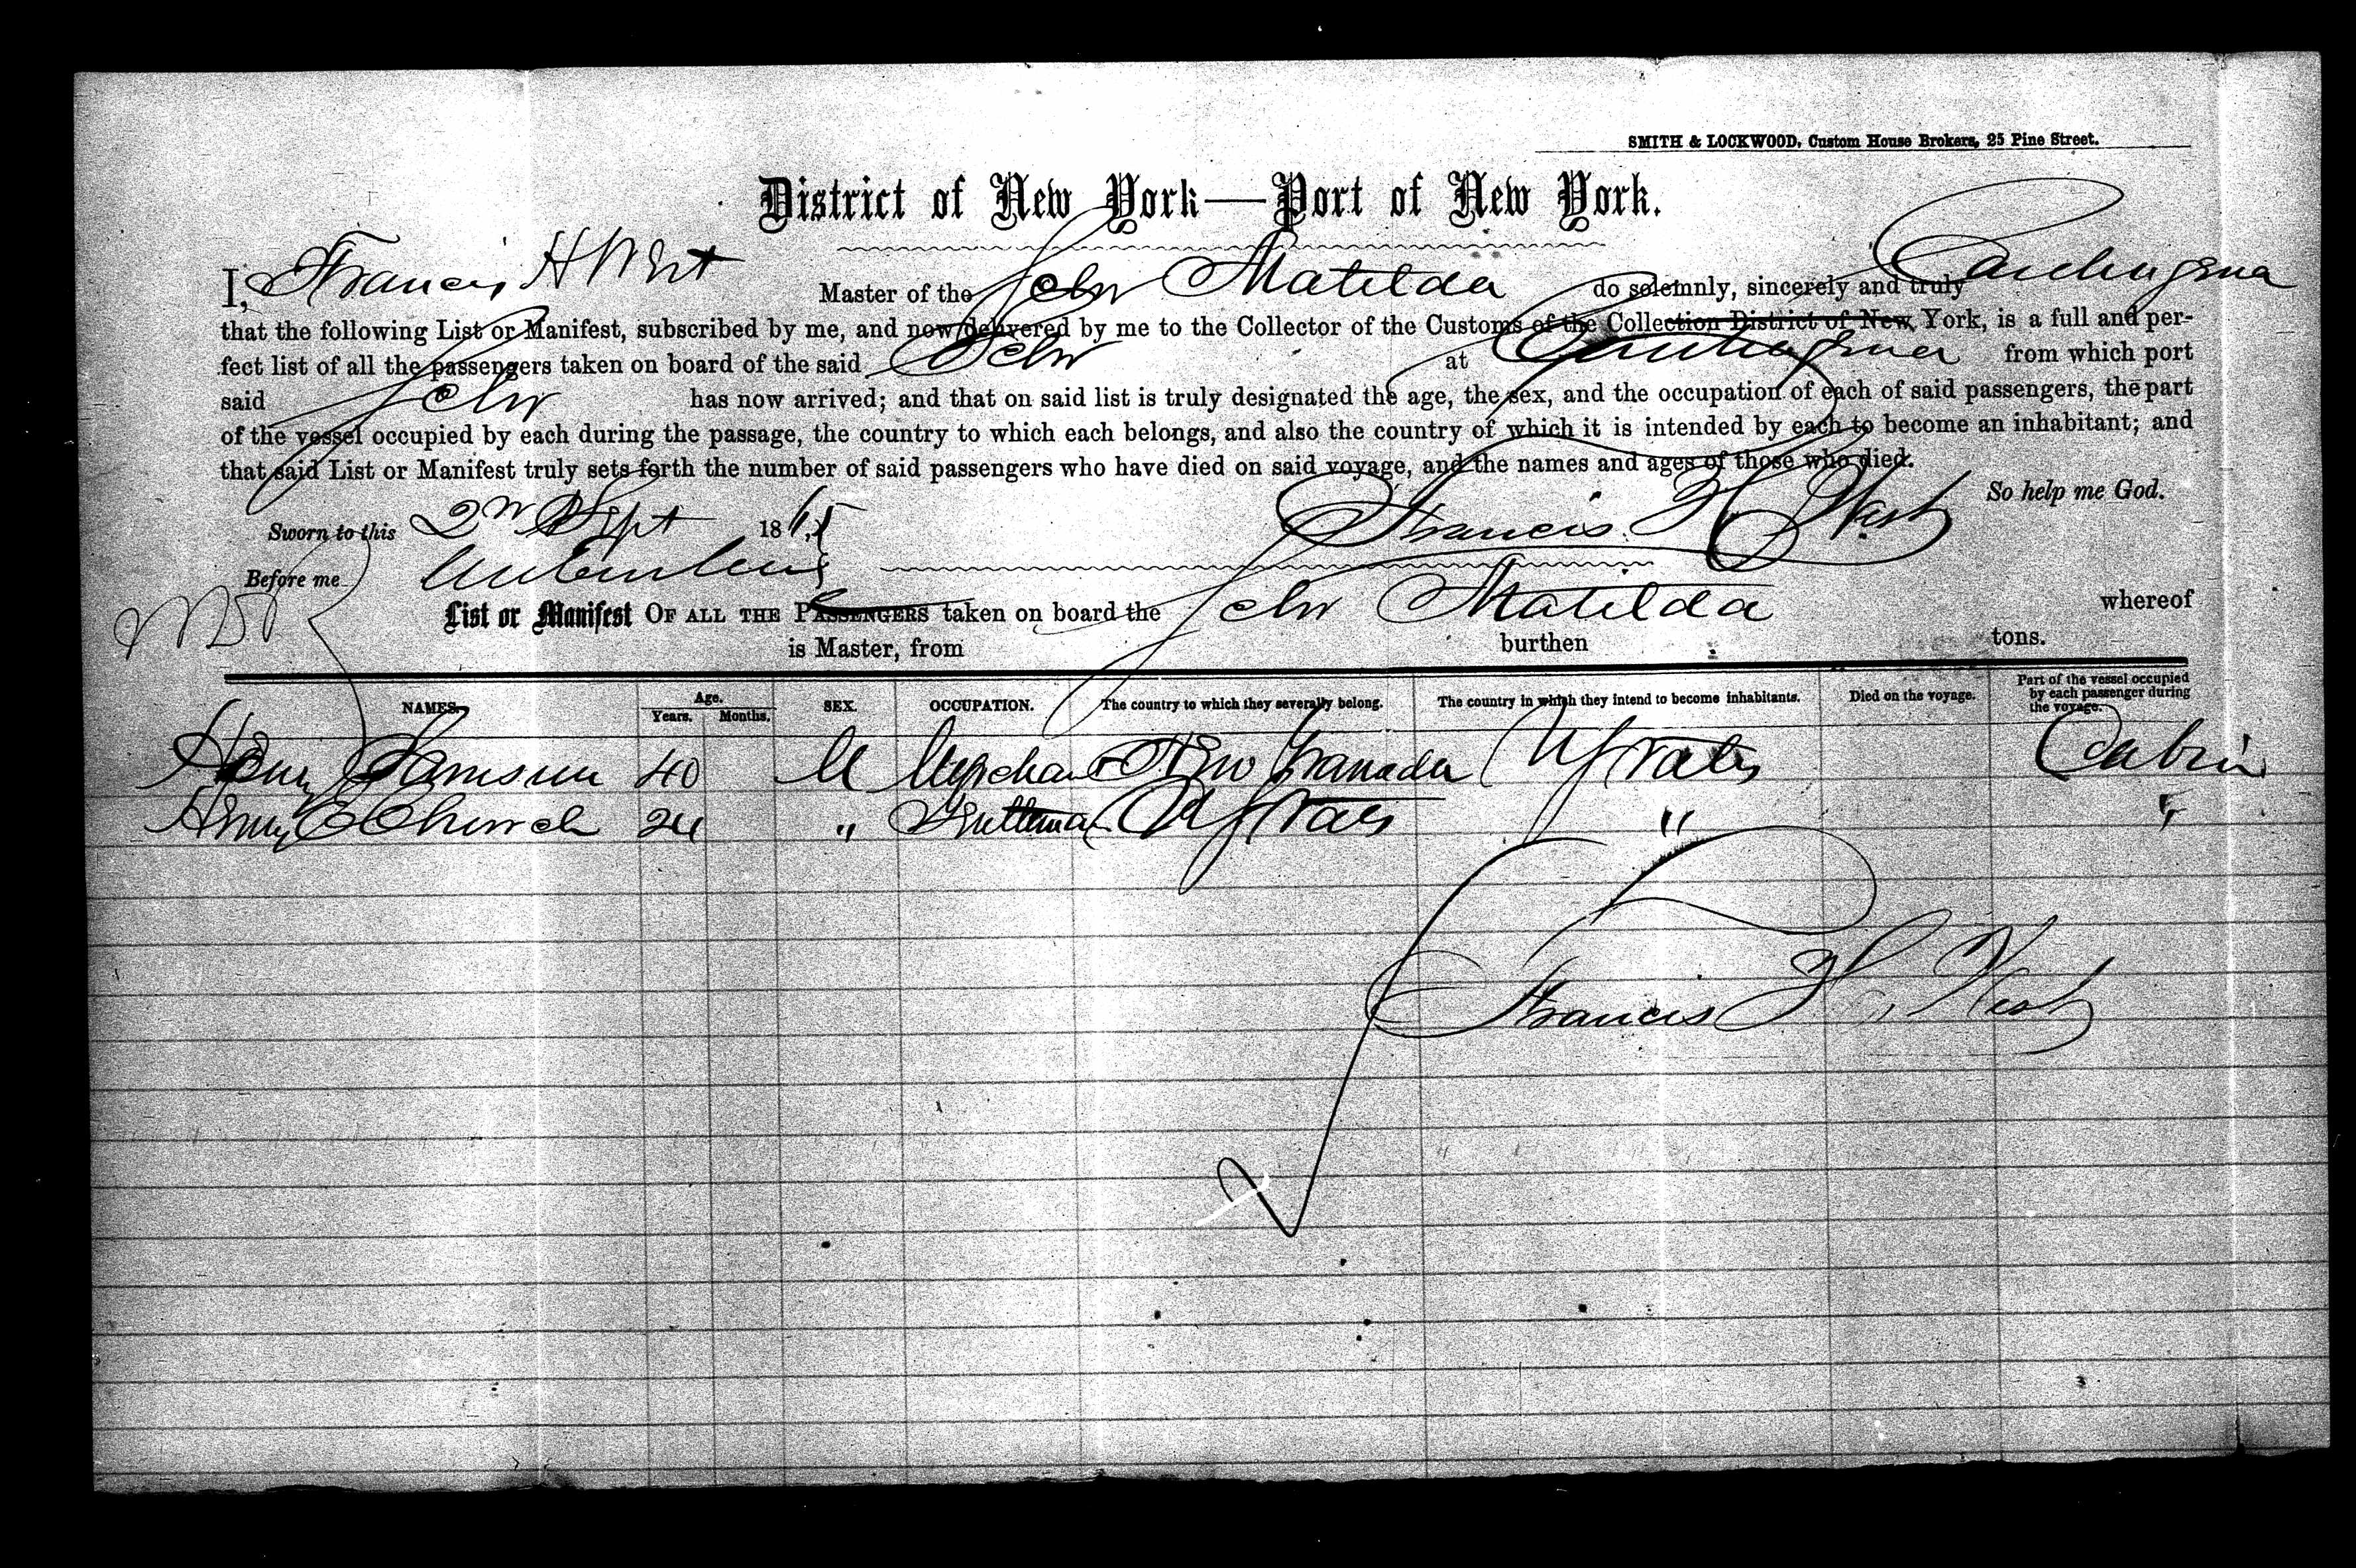 SMITH & LOCKWOOD, Custom House Brokers, 25 Pine Street.
District of New York—Port of New York.
I, Francis H West Master of the Schr Matilda do solemnly, sincerely and truly
that the following List or Manifest, subscribed by me, and now delivered by me to the Collector of the Customs of the Collection District of New York, is a full and per-
fect list of all the passengers taken on board of the said Schr at from which port
said Schr has now arrived; and that on said list is truly designated the age, the sex, and the occupation of each of said passengers, the part
of the vessel occupied by each during the passage, the country to which each belongs, and also the country of which it is intended by each to become an inhabitant; and
that said List or Manifest truly sets forth the number of said passengers who have died on said voyage, and the names and ages of those who died.
So help me God.
Sworn to this 2nd Sept 1865 Francis H West
Before me
List or Manifest OF ALL THE PASSENGERS taken on board the Schr Matilda whereof
is Master, from burthen tons.
NAMES. Age. Years. Months. SEX. OCCUPATION. The country to which they severally belong. The country in which they intend to become inhabitants. Died on the voyage. Part of the vessel occupied by each passenger during the voyage.
Henry 40 M Merchant New Granada U States Cabin
Henry E Church 24 " Gentleman U States " "
Francis H. West